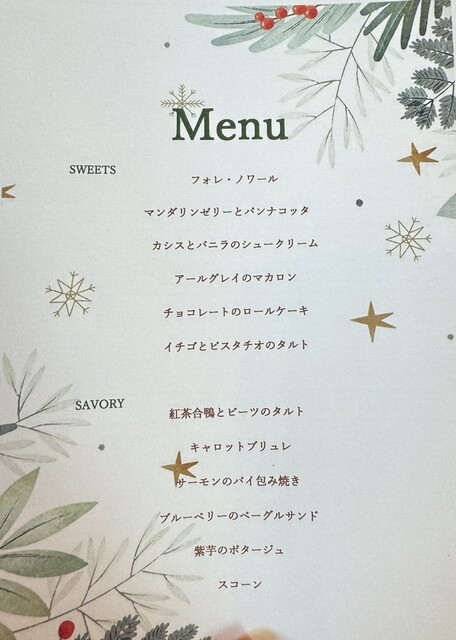 Menu
SWEETS
フォレ・ノワール
マンダリンゼリーとパンナコッタ
カシスとバニラのシュークリーム
アールグレイのマカロン
チョコレートのロールケーキ
イチゴとピスタチオのタルト
SAVORY
紅茶合鴨とビーツのタルト
キャロットブリュレ
サーモンのパイ包み焼き
ブルーベリーのベーグルサンド
紫芋のポタージュ
スコーン